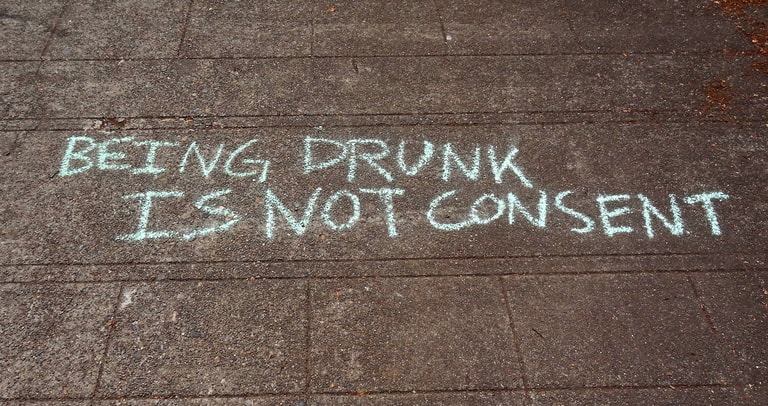 BEING DRUNK
IS NOT CONSENT